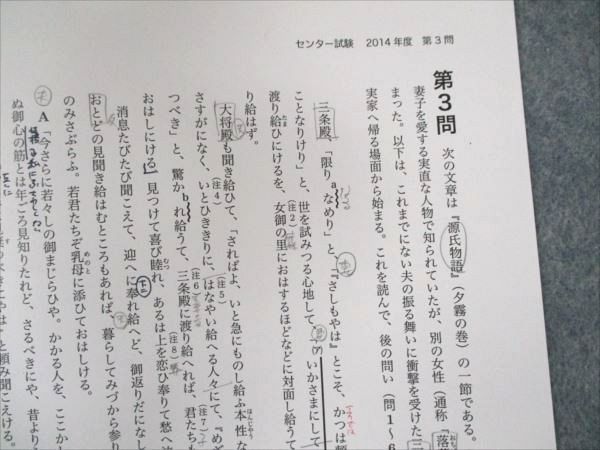 センター試験 2014年度 第3問
第3問
次の文章は『源氏物語』(夕霧の巻)の一節である。
妻子を愛する実直な人物で知られていたが、別の女性(通称「落
まった。以下は、これまでにない夫の振る舞いに衝撃を受けた三
実家へ帰る場面から始まる。これを読んで、後の問い(問1~6
三条殿、「限りaなめり」と、「さしもやは」とこそ、かつは頼
ことなりけり」と、世を試みつる心地して、(ア)いかさまにして
渡り給ひにけるを、女御の里におはするほどなどに対面し給うて
り給はず。
大将殿も聞き給ひて、「さればよ、いと急にものし給ふ本性な
さすがになく、いとひききりに、はなやい給へる人々にて、『めざ
つべき」と、驚かbれ給うて、三条殿に渡り給へれば、君たちも
おはしにける」見つけて喜び睦れ、あるは上を恋ひ奉りて愁へ泣
消息たびたび聞こえて、迎へに奉れ給へど、御返りだになし
おとどの見聞き給はむところもあれば、暮らしてみづから参り
のみさぶらふ。若君たちぞ乳母に添ひておはしける。
A「今さらに若々しの御まじらひや。かかる人を、ここか
ぬ御心の筋とは年ごろ見知りたれど、さるべきにや、昔より
と頼み聞こえける。